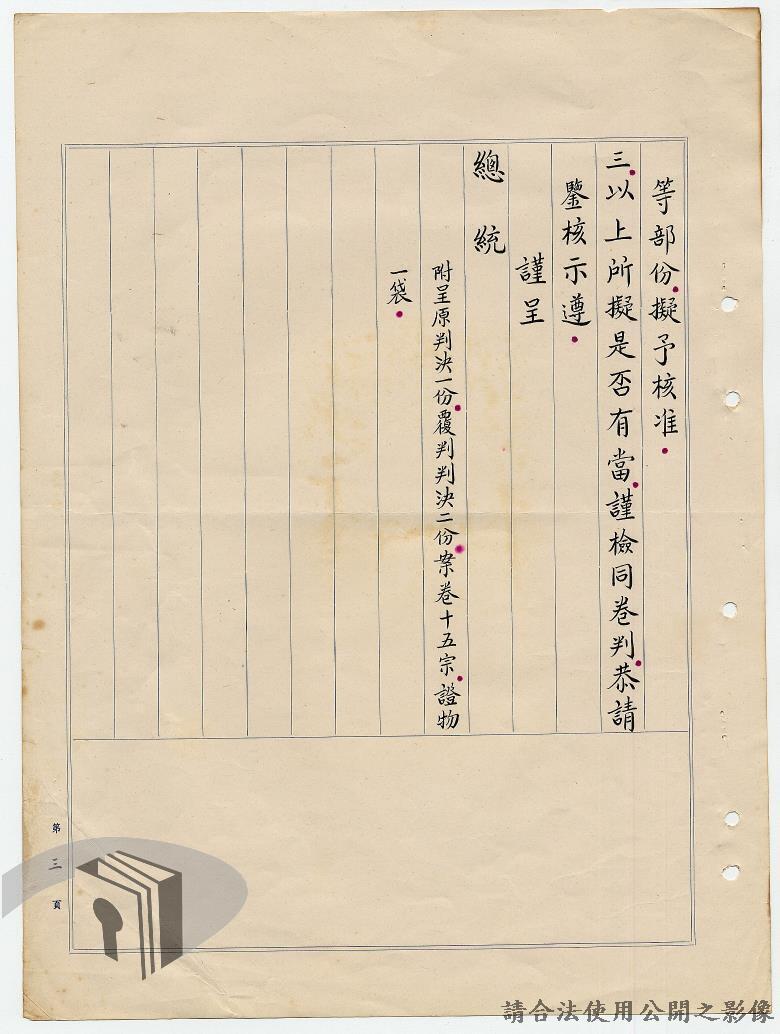 等部份擬予核准。
三以上所擬是否有當謹檢同卷判恭請
鑒核示遵。
謹呈
總統
附呈原判決一份覆判判決二份案卷十五宗證物
一袋。
第三頁
請合法使用公開之影像